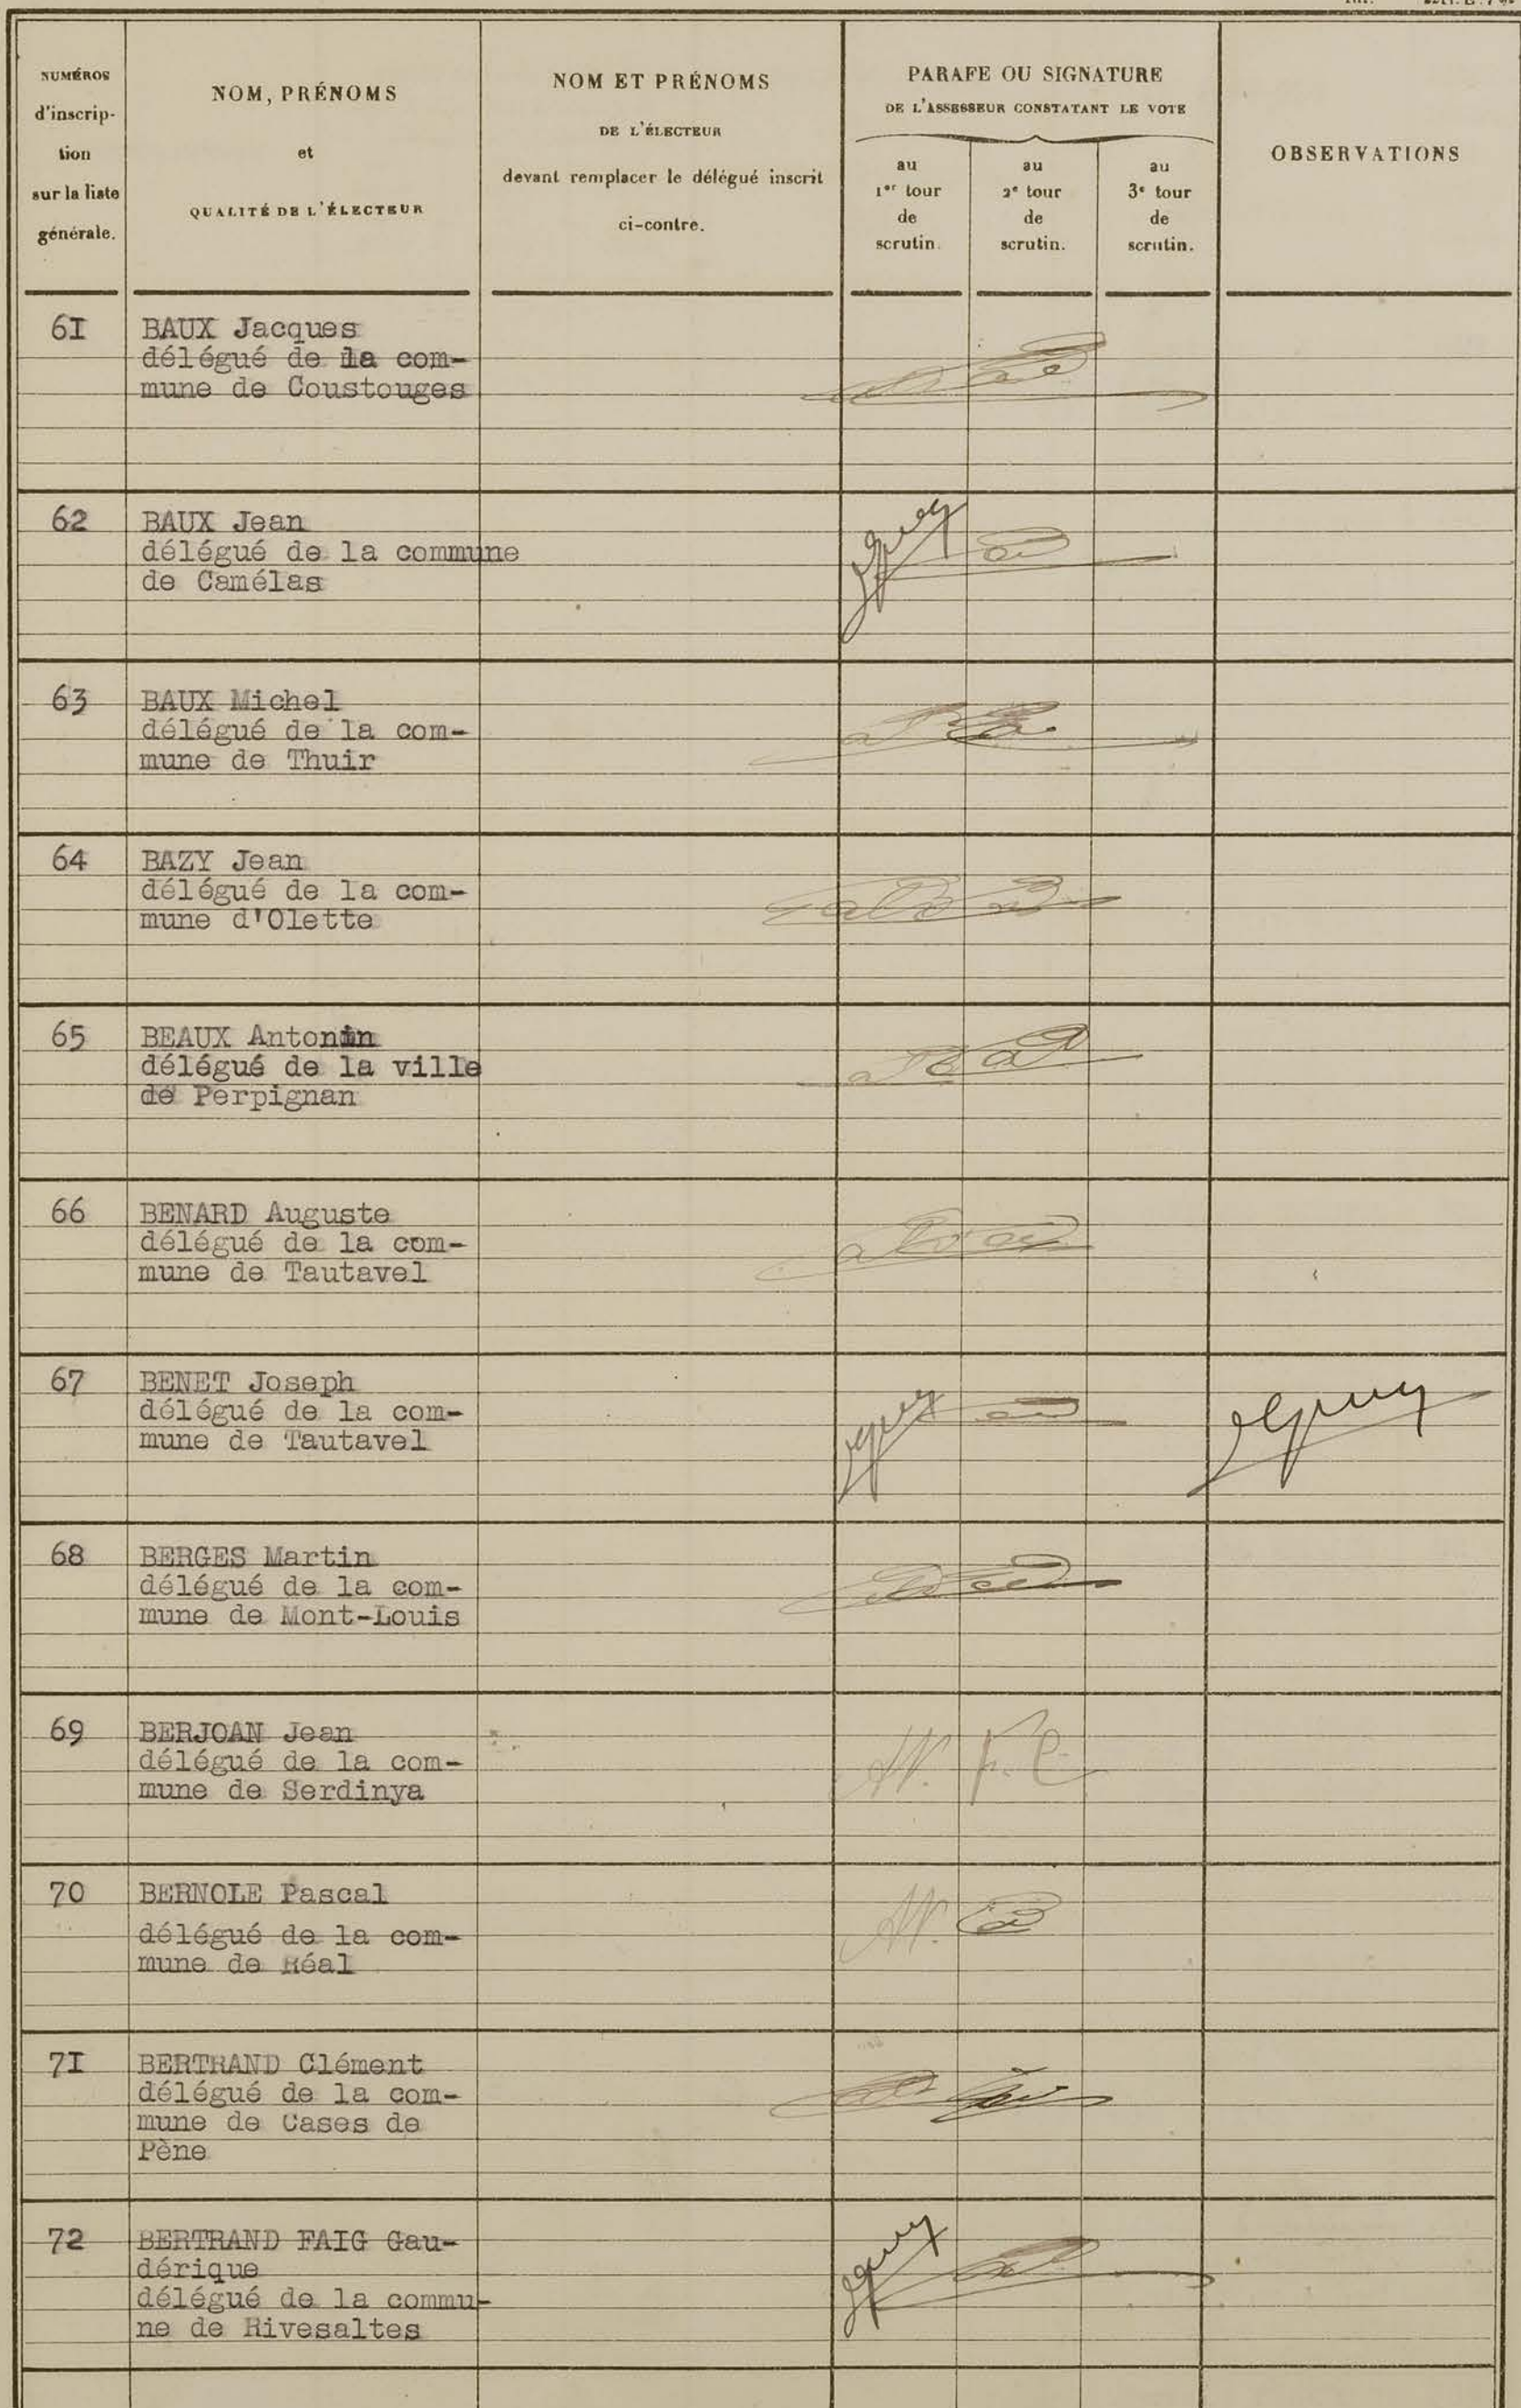 NUMÉROS
d'inscrip-
tion
sur la liste
générale.
NOM, PRÉNOMS
et
QUALITÉ DE L'ÉLECTEUR
NOM ET PRÉNOMS
DE L'ÉLECTEUR
devant remplacer le délégué inscrit
ci-contre.
PARAFE OU SIGNATURE
DE L'ASSESSEUR CONSTATANT LE VOTE
au
1er tour
de
scrutin.
au
2e tour
de
scrutin.
au
3e tour
de
scrutin.
OBSERVATIONS
61 BAUX Jacques
délégué de la com-
mune de Coustouges
62 BAUX Jean
délégué de la commune
de Camélas
63 BAUX Michel
délégué de la com-
mune de Thuir
64 BAZY Jean
délégué de la com-
mune d'Olette
65 BEAUX Antonin
délégué de la ville
de Perpignan
66 BENARD Auguste
délégué de la com-
mune de Tautavel
67 BENET Joseph
délégué de la com-
mune de Tautavel
68 BERGES Martin
délégué de la com-
mune de Mont-Louis
69 BERJOAN Jean
délégué de la com-
mune de Serdinya
70 BERNOLE Pascal
délégué de la com-
mune de Réal
71 BERTRAND Clément
délégué de la com-
mune de Cases de
Pène
72 BERTRAND FAIG Gau-
dérique
délégué de la commu-
ne de Rivesaltes